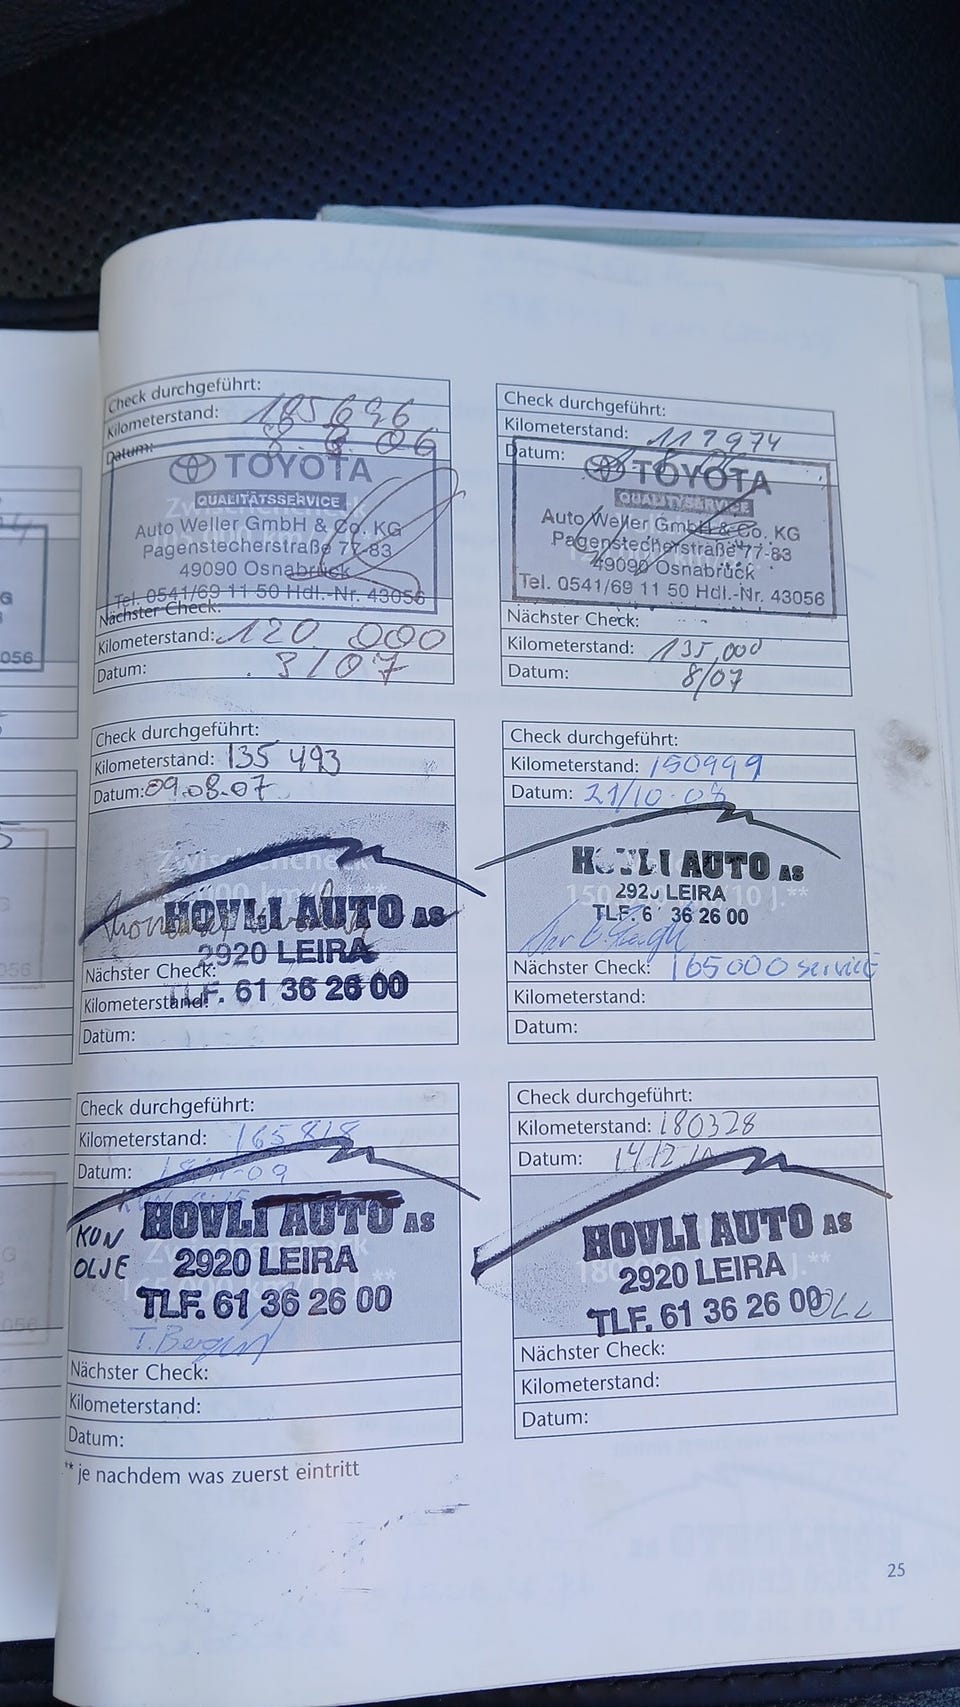 Check durchgeführt:
Kilometerstand: 105696
Datum: 8.8.06
TOYOTA
QUALITÄTSSERVICE
Auto Weller GmbH & Co. KG
Pagenstecherstraße 77-83
49090 Osnabrück
Tel. 0541/69 11 50 Hdl.-Nr. 43056
Nächster Check:
Kilometerstand: 120 000
Datum: 8/07
Check durchgeführt:
Kilometerstand: 117974
Datum:
TOYOTA
QUALITÄTSSERVICE
Auto Weller GmbH & Co. KG
Pagenstecherstraße 77-83
49090 Osnabrück
Tel. 0541/69 11 50 Hdl.-Nr. 43056
Nächster Check:
Kilometerstand: 135,000
Datum: 8/07
Check durchgeführt:
Kilometerstand: 135 493
Datum: 09.08.07
Zwischencheck
HOVLI AUTO AS
2920 LEIRA
TLF. 61 36 26 00
Nächster Check:
Kilometerstand:
Datum:
Check durchgeführt:
Kilometerstand: 150999
Datum: 21/10-08
HOVLI AUTO AS
2920 LEIRA
TLF. 6 36 26 00
Nächster Check: 165000 service
Kilometerstand:
Datum:
Check durchgeführt:
Kilometerstand: 165818
Datum:
KUN
OLJE
HOVLI AUTO AS
2920 LEIRA
TLF. 61 36 26 00
Nächster Check:
Kilometerstand:
Datum:
Check durchgeführt:
Kilometerstand: 180328
Datum: 14/12
HOVLI AUTO AS
2920 LEIRA
TLF. 61 36 26 00
Nächster Check:
Kilometerstand:
Datum:
** je nachdem was zuerst eintritt
25